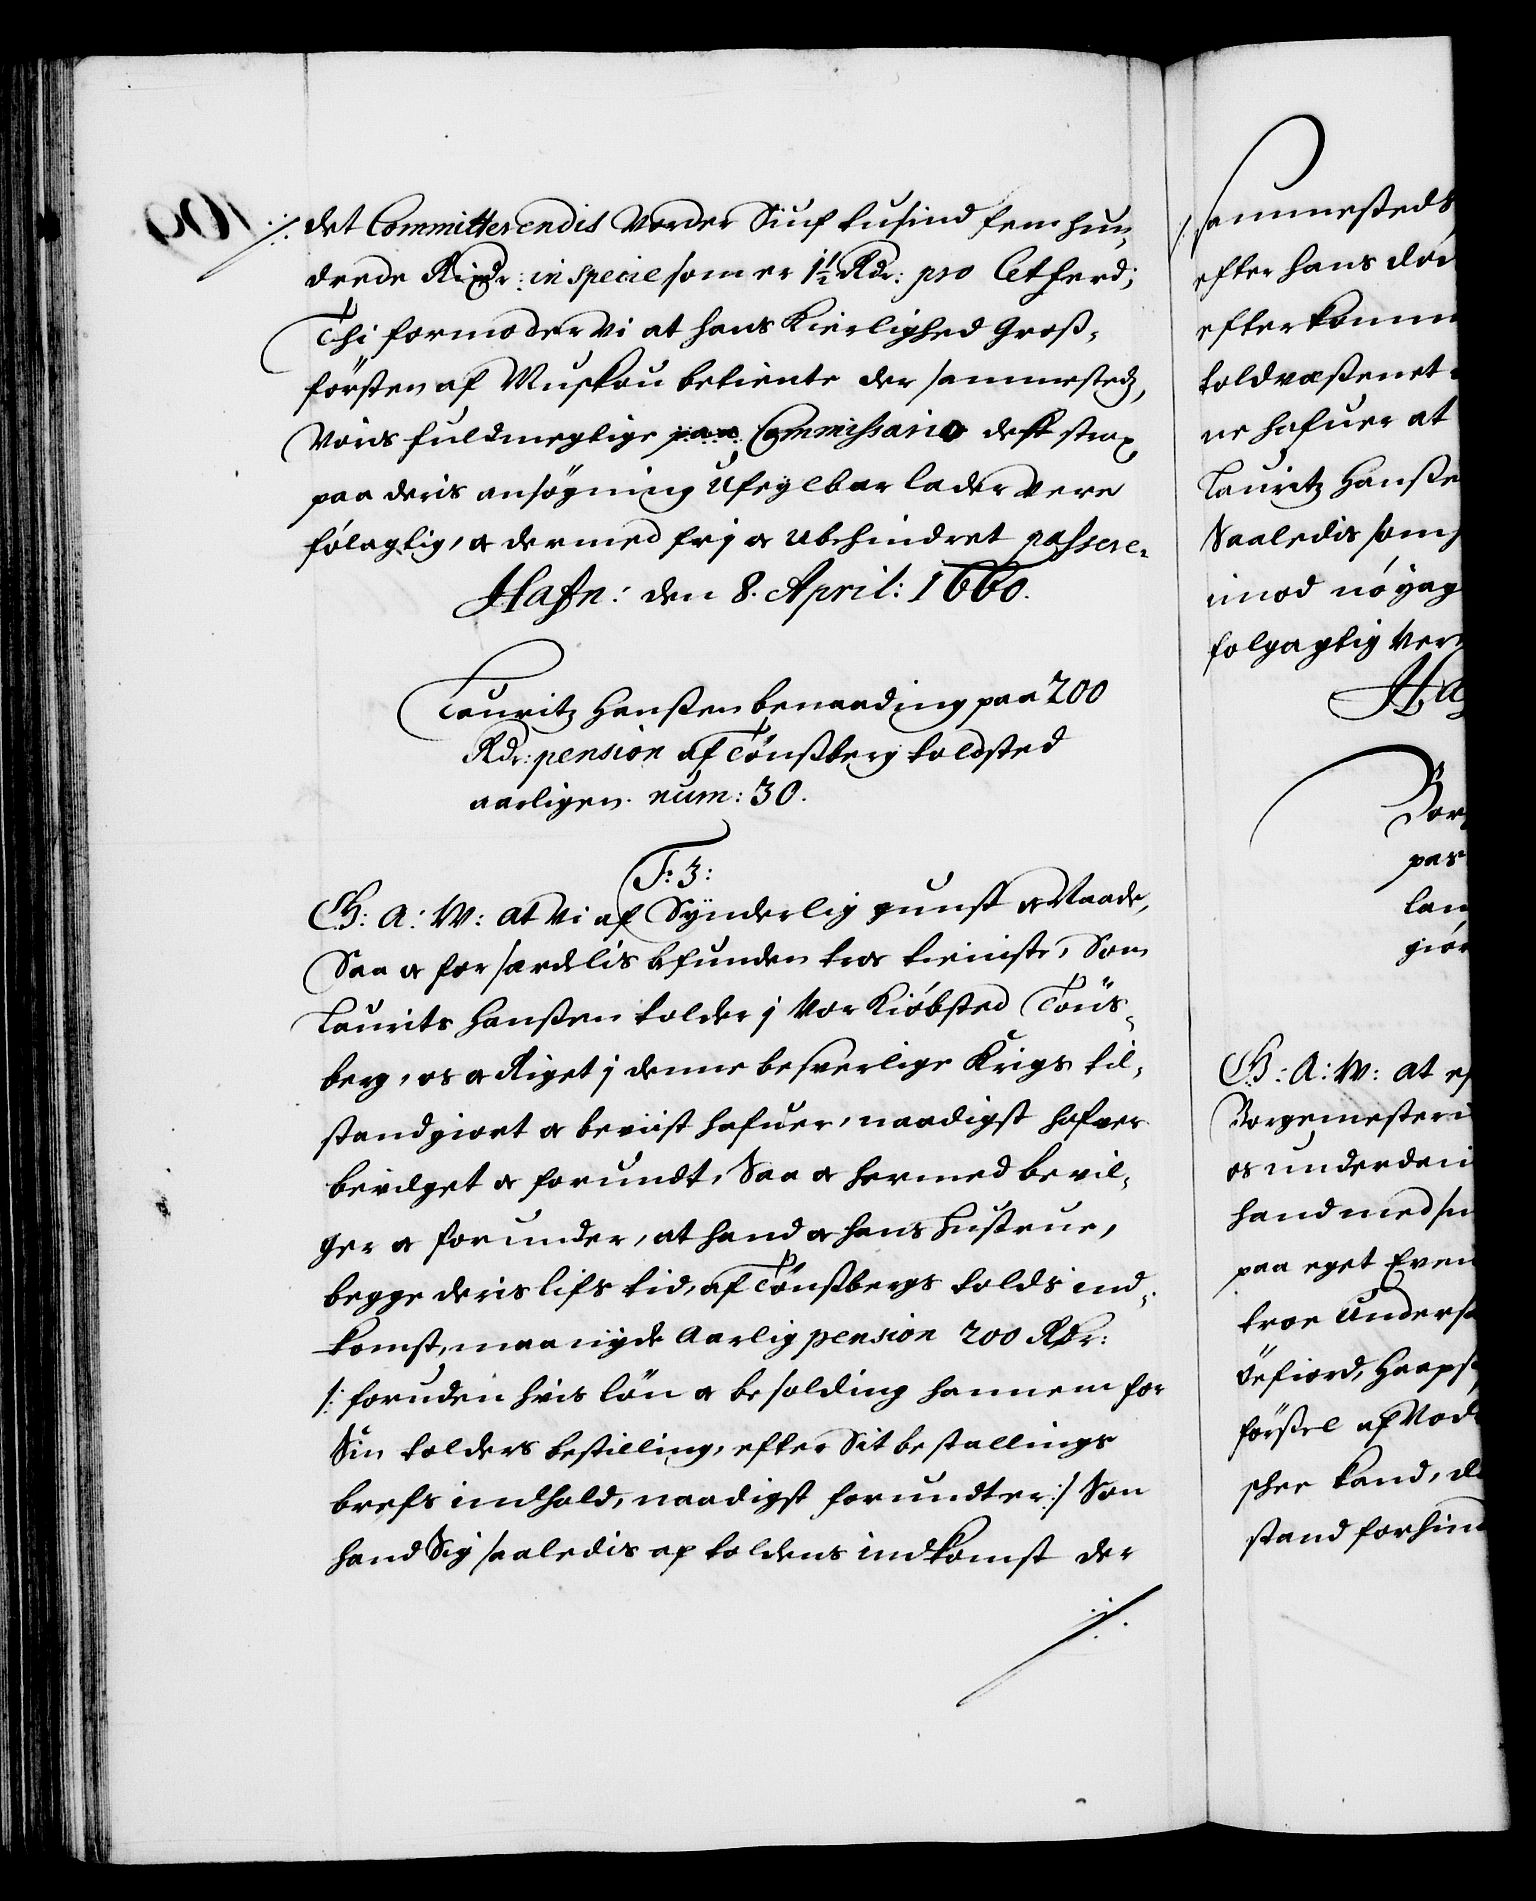 det Committerendis Vorder Siuf tusind fem hun-
drede Rixdr: in specie som er 1½ Rdr: pro Cetferd;
Thi formoder vi at hans Kierlighed Gross-
førsten af Muskou betiente der sammesteds,
Voris fuldmegtige Commissario dett strax
paa deris ansøgning Ufeylbar lader vere
følagtig, oc dermed frj oc ubehindret passere.
Hafn: den 8. April: 1660.
Lauritz Hanssen benaading paa 200
Rdr: pension af Tønssberg toldsted
aarligen. num: 30.
F: 3:
G: A: W: at vi af Synderlig gunst oc Naade,
Saa oc for særdelis befunden tro tieniste, Som
Laurits Hanssen tolder j Vor Kiøbsted Tøns-
berg, os oc Riget j denne besverlige Krigs til-
stand giort oc beviist hafuer, naadigst hafver
bevilget oc forundt, Saa oc hermed bevil-
ger oc forunder, at hand oc hans Hustrue,
begge deris lifs tid, af Tønssbergs tolds ind-
komst, maa nyde Aarlig pension 200 Rdr:
/: foruden hvis løn oc besolding hannem for
Sin tolders bestilling, efter Sit bestallings
brefs indhold, naadigst forundt er:/ Som
hand Sig saaledis af toldens indkomst der
sammesteds
efter hans død
efterkomm
toldvæssenet
ne hafuer at
Lauritz Hansse
Saaledis som
imod nøyag
folgagtig ver
Ha
Bor
pas
lan
giør
G: A: W: at ef
Borgemester
os underdan
hand med sin
paa eget Even
troe Undersa
førssel af Nod
skee kand, d
stand forhin